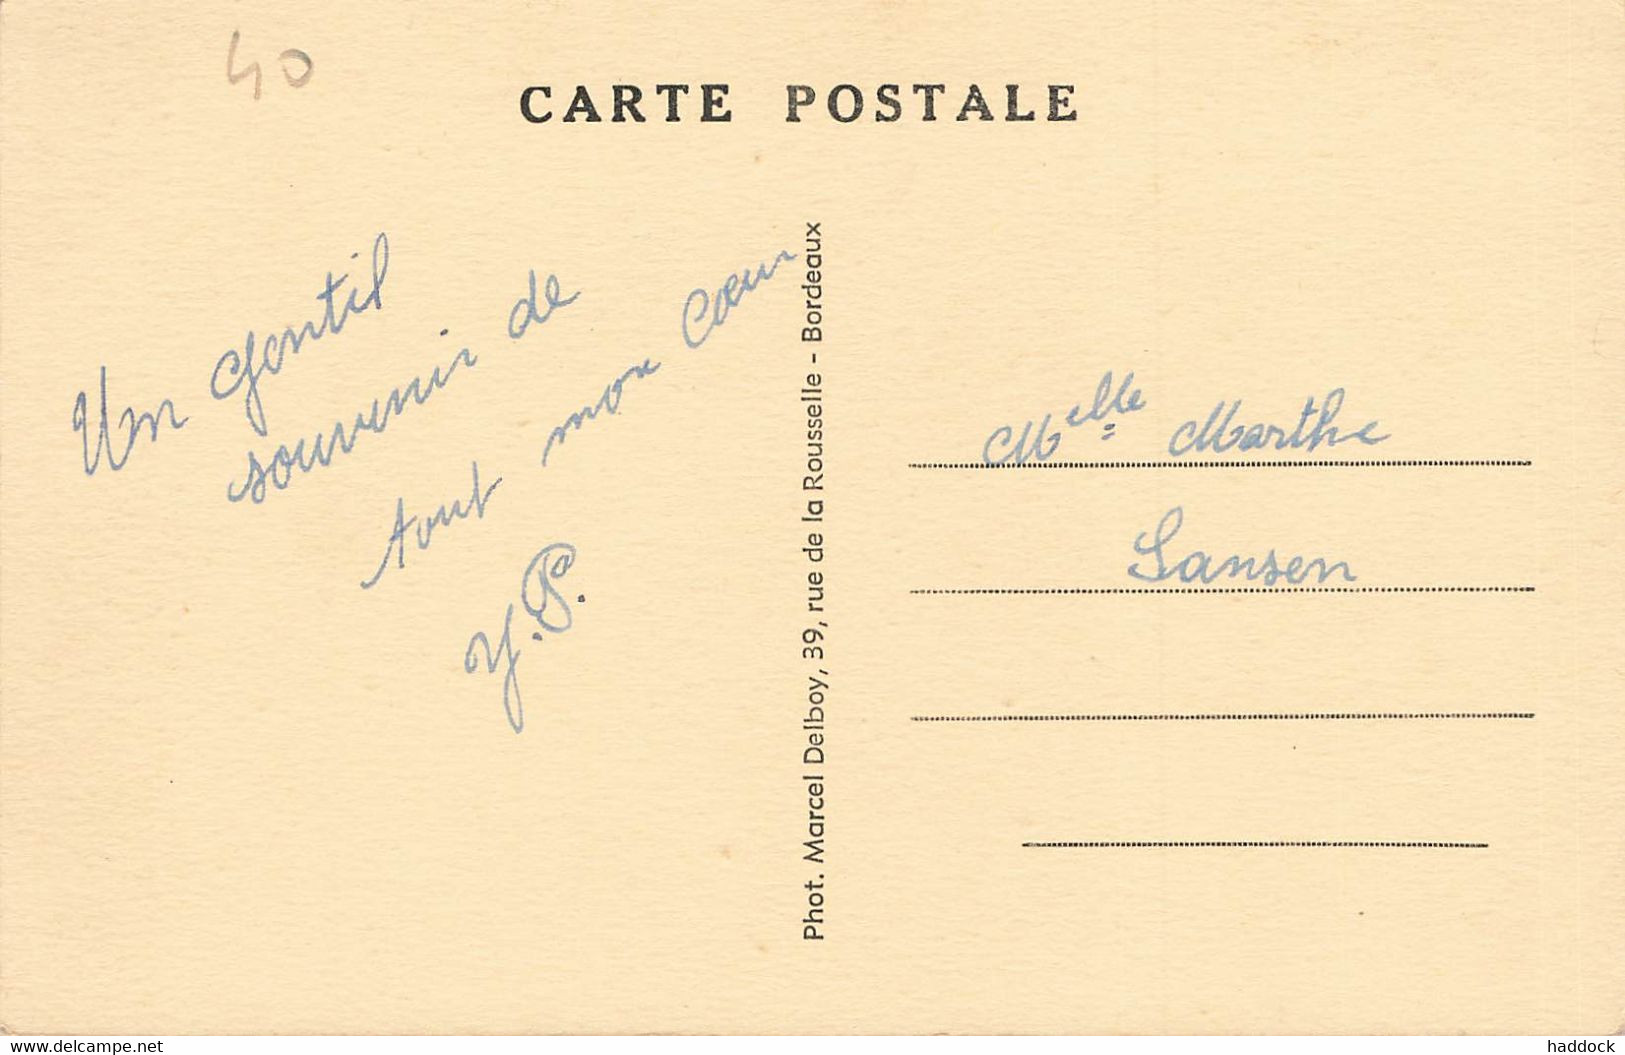 40
CARTE POSTALE
Un gentil
souvenir de
tout mon cœur
Y. P.
Phot. Marcel Delboy, 39, rue de la Rousselle - Bordeaux
Melle Marthe
Sansen
www.delcampe.net
haddock